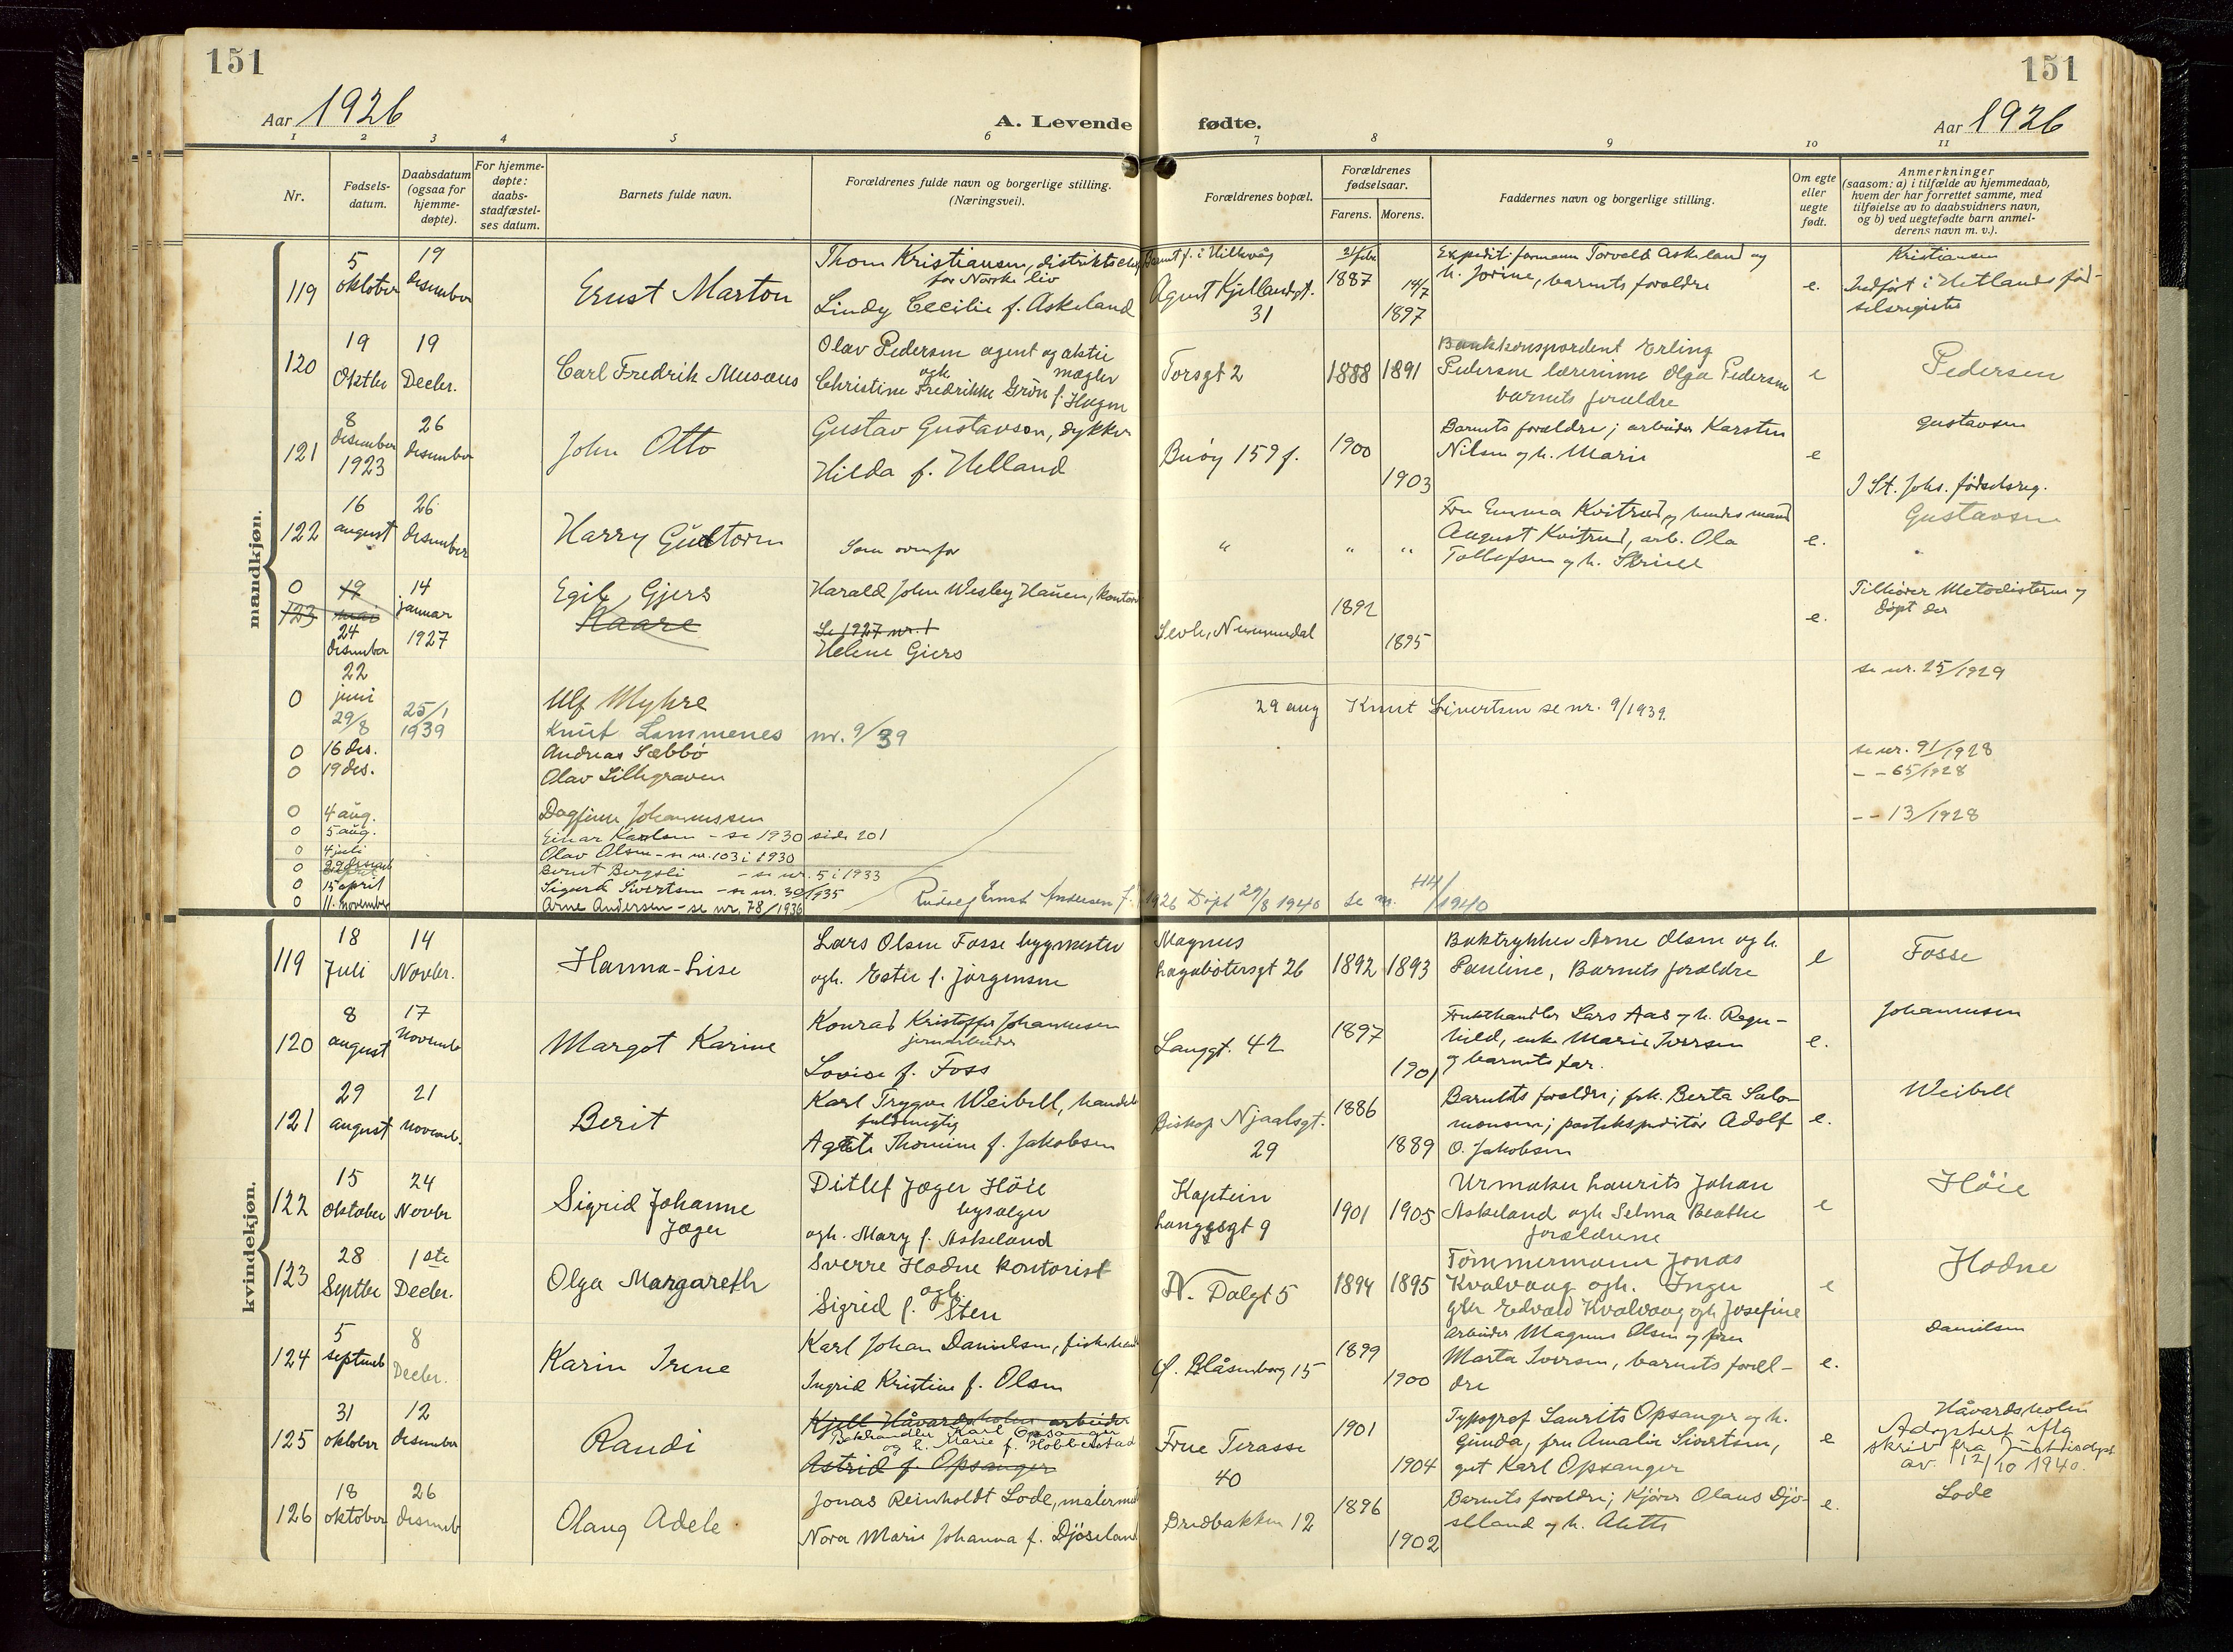 151
151
Aar 1926
A. Levende fødte.
Aar 1926
1 2 3 4 5 6 7 8 9 10 11
Nr.
Fødsels-
datum.
Daabsdatum
(ogsaa for
hjemme-
døpte).
For hjemme-
døpte:
daabs-
stadfæstel-
ses datum.
Barnets fulde navn.
Forældrenes fulde navn og borgerlige stilling.
(Næringsvei).
Forældrenes bopæl.
Forældrenes
fødselsaar.
Farens. Morens.
Faddernes navn og borgerlige stilling.
Om egte
eller
uegte
født.
Anmerkninger
(saasom: a) i tilfælde av hjemmedaab,
hvem der har forrettet samme, med
tilføielse av to daabsvidners navn,
og b) ved uegtefødte barn anmel-
derens navn m. v.).
mandkjøn.
119
5
oktober
19
desember
Ernst Marton
Thom Kristiansen, distriktschef
for Norske liv
Lindy Cecilie f. Askeland
Barnet f. i Hillevåg
Agent Kjellandsgt.
31
1887
14/7
1897
Expedit. formann Torvald Askeland og
h. Jorine, barnets foreldre
e.
Kristiansen
Indført i Hetlands fød-
selsregister
120
19
Oktbr
19
Decbr.
Carl Fredrik Musæus
Olav Pedersen agent og aktie
mægler
ogh
Christine Fredrikke Grön f. Hagen
Torsgt 2
1888 1891
Bankkorrespondent Erling
Pedersen lærerinne Olga Pedersen
barnets forældre
e
Pedersen
121
8
desember
1923
26
desember
John Otto
Gustav Gustavson, dykker
Hilda f. Helland
Buøy 159 f.
1900
1903
Barnets foreldre; arbeider Karsten
Nilsen og h. Marie
e
Gustavsen
I St. Johs. fødselsreg.
122
16
august
26
desember
Harry Guttorm
Som ovenfor
" " "
Fru Emma Kvitrud og hendes mand
August Kvitrud, arb. Ola
Tollefsen og h.
e.
Gustavsen
0
123
19
mai
24
desember
14
januar
1927
Egil Gjers
Kaare
Harald John Wesley Hauen, kontor
Se 1927 nr. 1
Helene Giers
1892
1895
e.
Tilhører Metodisterne og
døpt der
0
22
juni
Ulf Myhre
se nr. 25/1929
29/8
25/1
1939
Knut Lammenes nr. 9/39
29 aug Knut Sivertsen se nr. 9/1939.
0 16 des. Andreas Sæbbø se nr. 91/1928
0 19 des. Olav Lillegraven - - 65/1928
0 4 aug. Dagfinn Johannessen - - 13/1928
0 5 aug. Einar Karlsen - se 1930 side 201
0 4 juli Olav Olsen - se nr. 103 i 1930
0 Bernt Bergsli - se nr. 5 i 1933
0 15 april Sigurd Sivertsen - se nr. 30/1935
0 11. november Arne Andersen - se nr. 78/1936
Rudolf Ernst Andersen f. 1926 Døpt 29/8 1940 se nr. 114/1940
kvindekjøn.
119
18
Juli
14
Novbr.
Hanna-Lise
Lars Olsen Fosse bygmester
ogh. Ester f. Jørgensen
Magnus
Lagabøtersgt 26
1892 1893
Boktrykker Arne Olsen og h.
Pauline, Barnets forældre
e
Fosse
120
8
august
17
Novemb
Margot Karine
Konrad Kristoffer Johannesen
jernarbeider
Lovise f. Foss
Langgt. 42
1897
1901
Frukthandler Lars Aas og h. Ragn-
hild, enke Marie Iversen
og barnets far.
e.
Johannesen
121
29
august
21
novemb.
Berit
Karl Trygve Weibell, handels
fuldmegtig
Agate Thomine f. Jakobsen
Biskop Njaalsgt.
29
1886
1889
Barnets foreldre; frk. Berta Salo-
monsen; postekspeditør Adolf
O. Jakobsen
e.
Weibell
122
15
Oktober
24
Novbr
Sigrid Johanne
Jæger
Ditlef Jæger Høie
bysælger
ogh. Mary f. Askeland
Kaptein
Langesgt 9
1901 1905
Urmaker Laurits Johan
Askeland ogh Selma Beathe
forældrene
e
Høie
123
28
Septbr
1ste
Decbr.
Olga Margareth
Sverre Hodne kontorist
ogh.
Sigrid f. Sten
N. Dalgt 5
1894 1895
Tømmermann Jonas
Kvalvaag ogh. Inger
gbr Edvald Kvalvaag ogh Josefine
e
Hodne
124
5
septemb
8
Decbr.
Karin Irene
Karl Johan Danielsen, fiskehand
Ingrid Kristine f. Olsen
Ø. Blåsenborg 15
1899
1900
Arbeider Magnus Olsen og fru
Marta Iversen, barnets forel-
dre
e.
Danielsen
125
31
oktober
12
desember
Randi
Kjell Håvardsholm arbeider
Bokhandler Karl Opsanger
og h. Marie f. Hobberstad
Astrid f. Opsanger
Frue Terasse
40
1901
1904
Typograf Laurits Opsanger og h.
Gunda, fru Amalie Sivertsen,
gut Karl Opsanger
e
Håvardsholm
Adoptert iflg
skriv fra Justisdept
av 12/10 1940.
126
18
oktober
26
desemb
Olaug Adele
Jonas Reinholdt Lode, malerme
Nora Marie Johanna f. Djöseland
Bredbakken 12
1896
1902
Barnets foreldre; Kjører Olaus Djö-
seland og h. Alette
e.
Lode